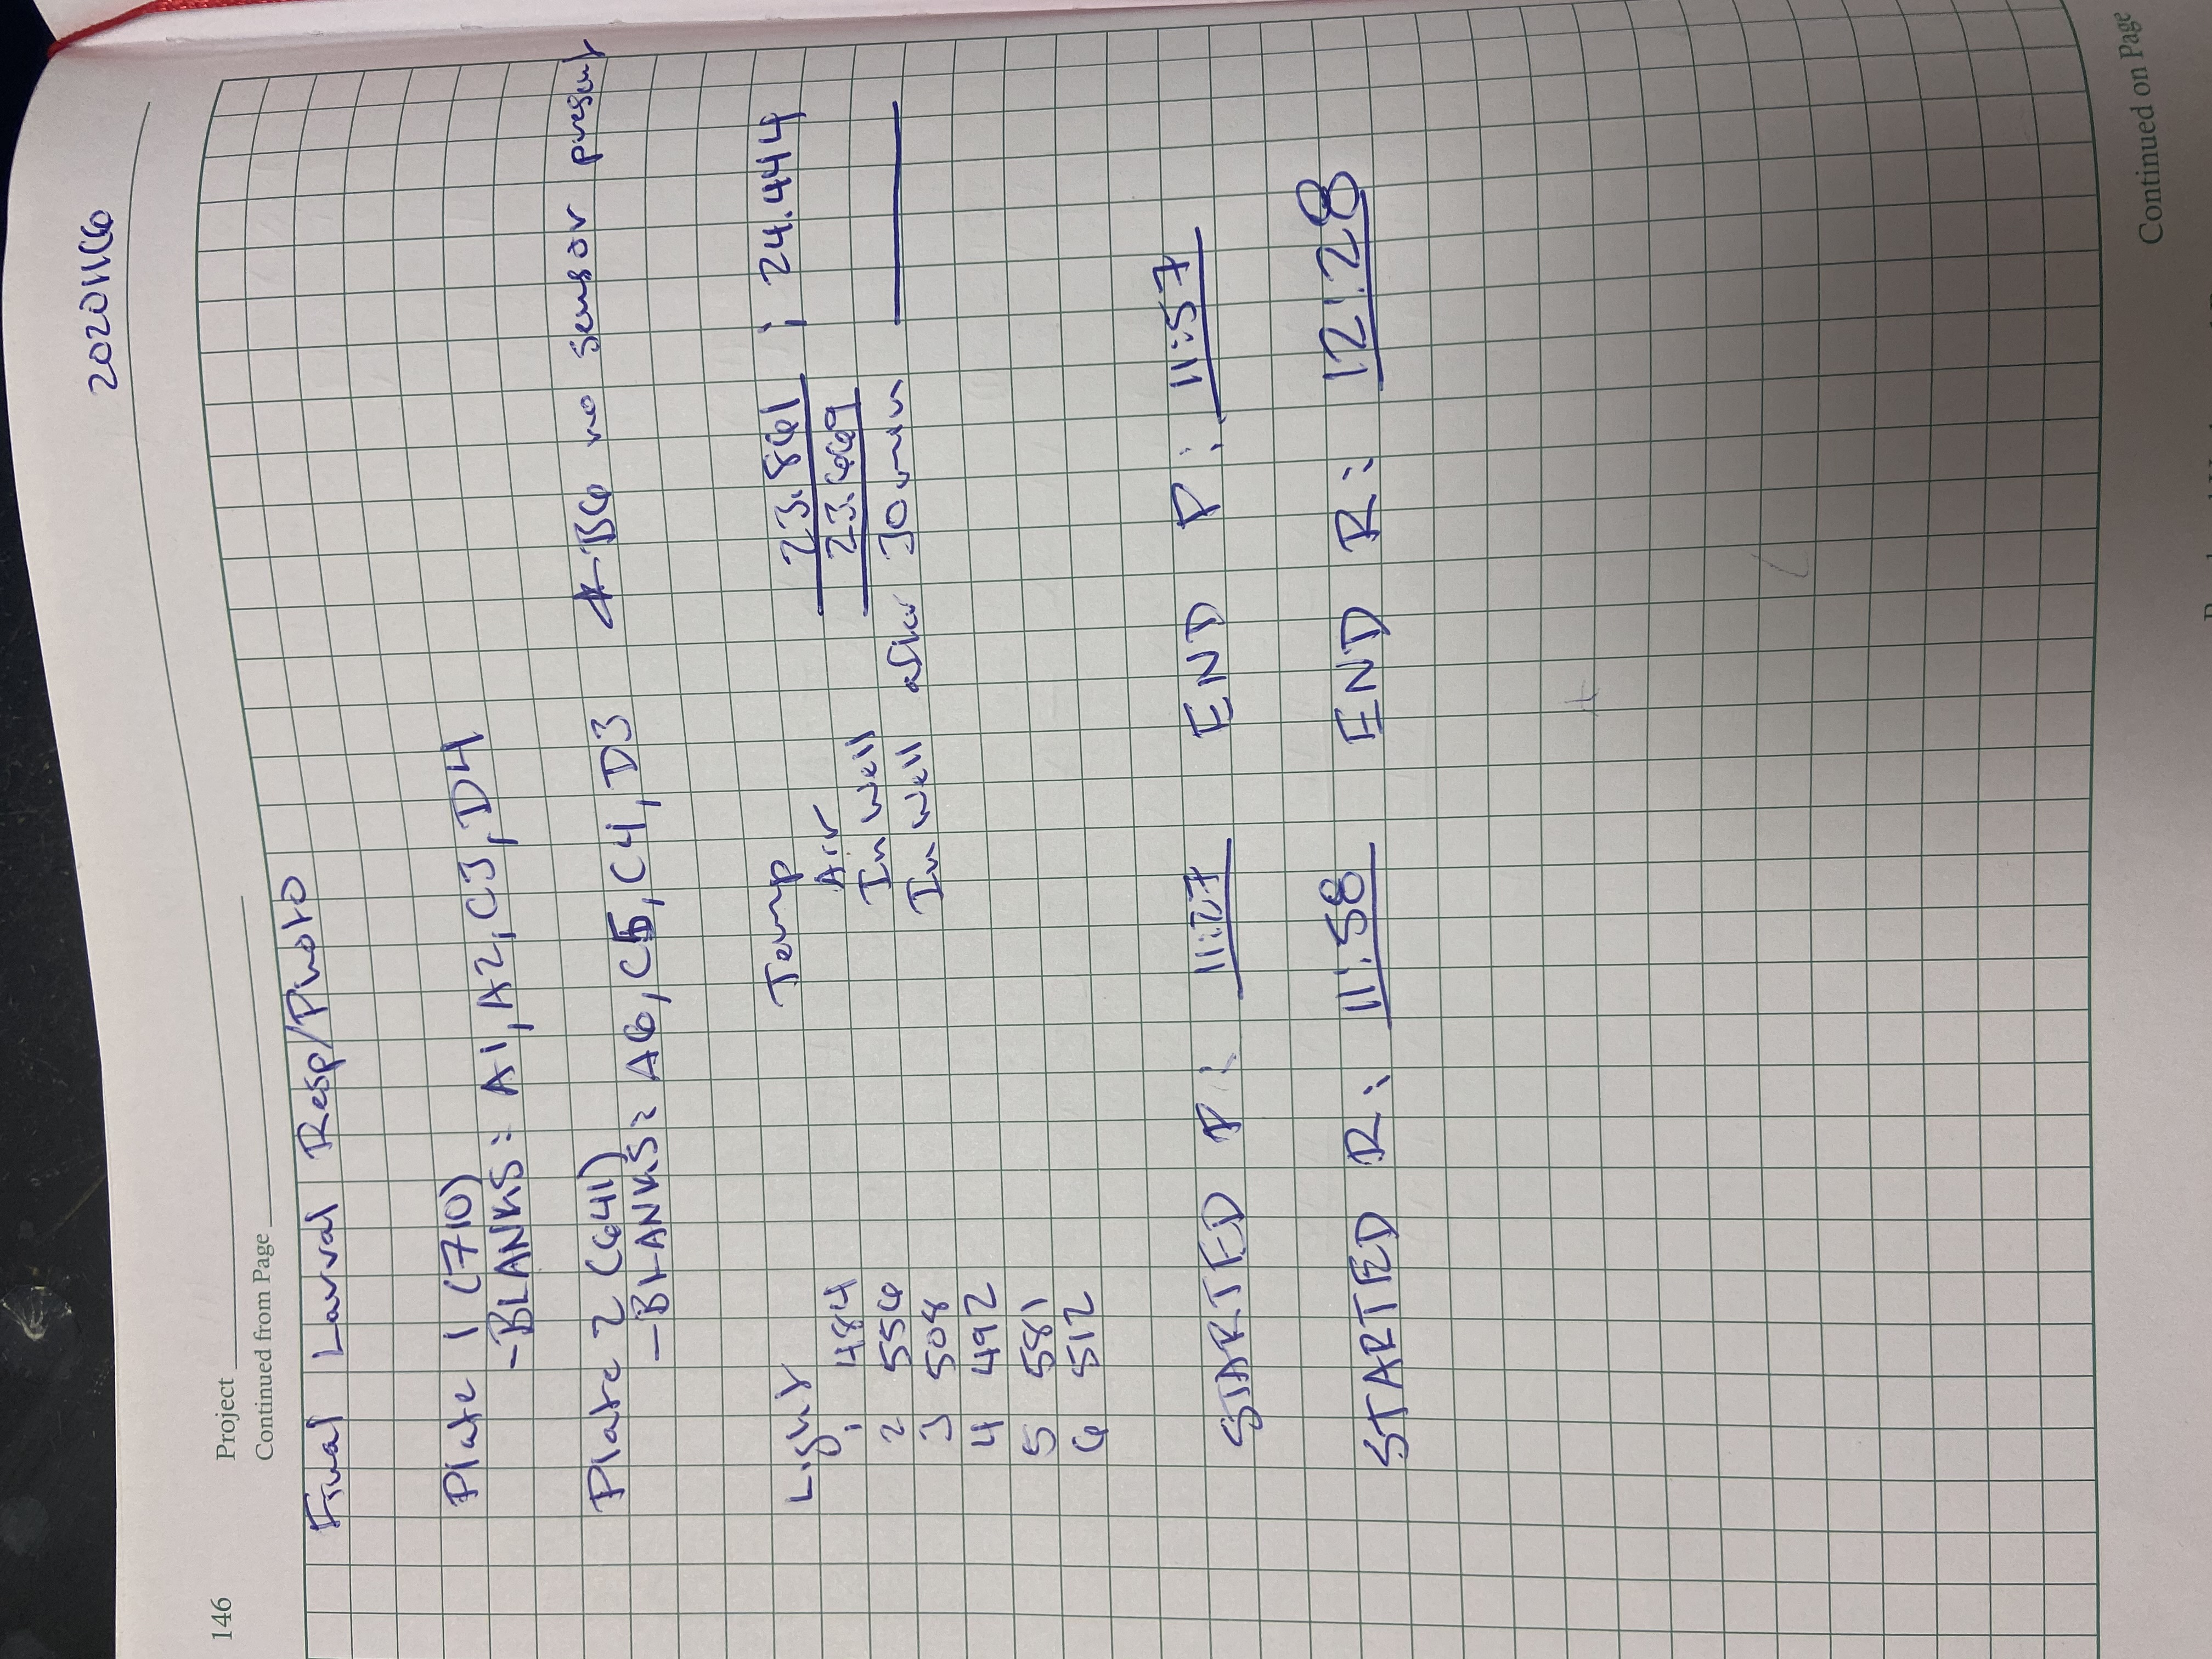 20201116
146
Project
Continued from Page
Final Larval Resp/Photo
Plate 1 (710)
-BLANKS: A1, A2, C3, D4
Plate 2 (641) * B6 no sensor present
-BLANKS: A6, C5, C4, D3
Light
1 484
2 556
3 508
4 492
5 581
6 512
Temp
Air 23.861 ; 24.444
In Well 23.669
In Well after 30 min
STARTED P: 11:27 END P: 11:57
STARTED R: 11:58 END R: 12:28
Continued on Page